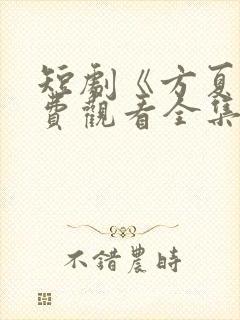 短劇《方夏
費觀看全集
不錯農時